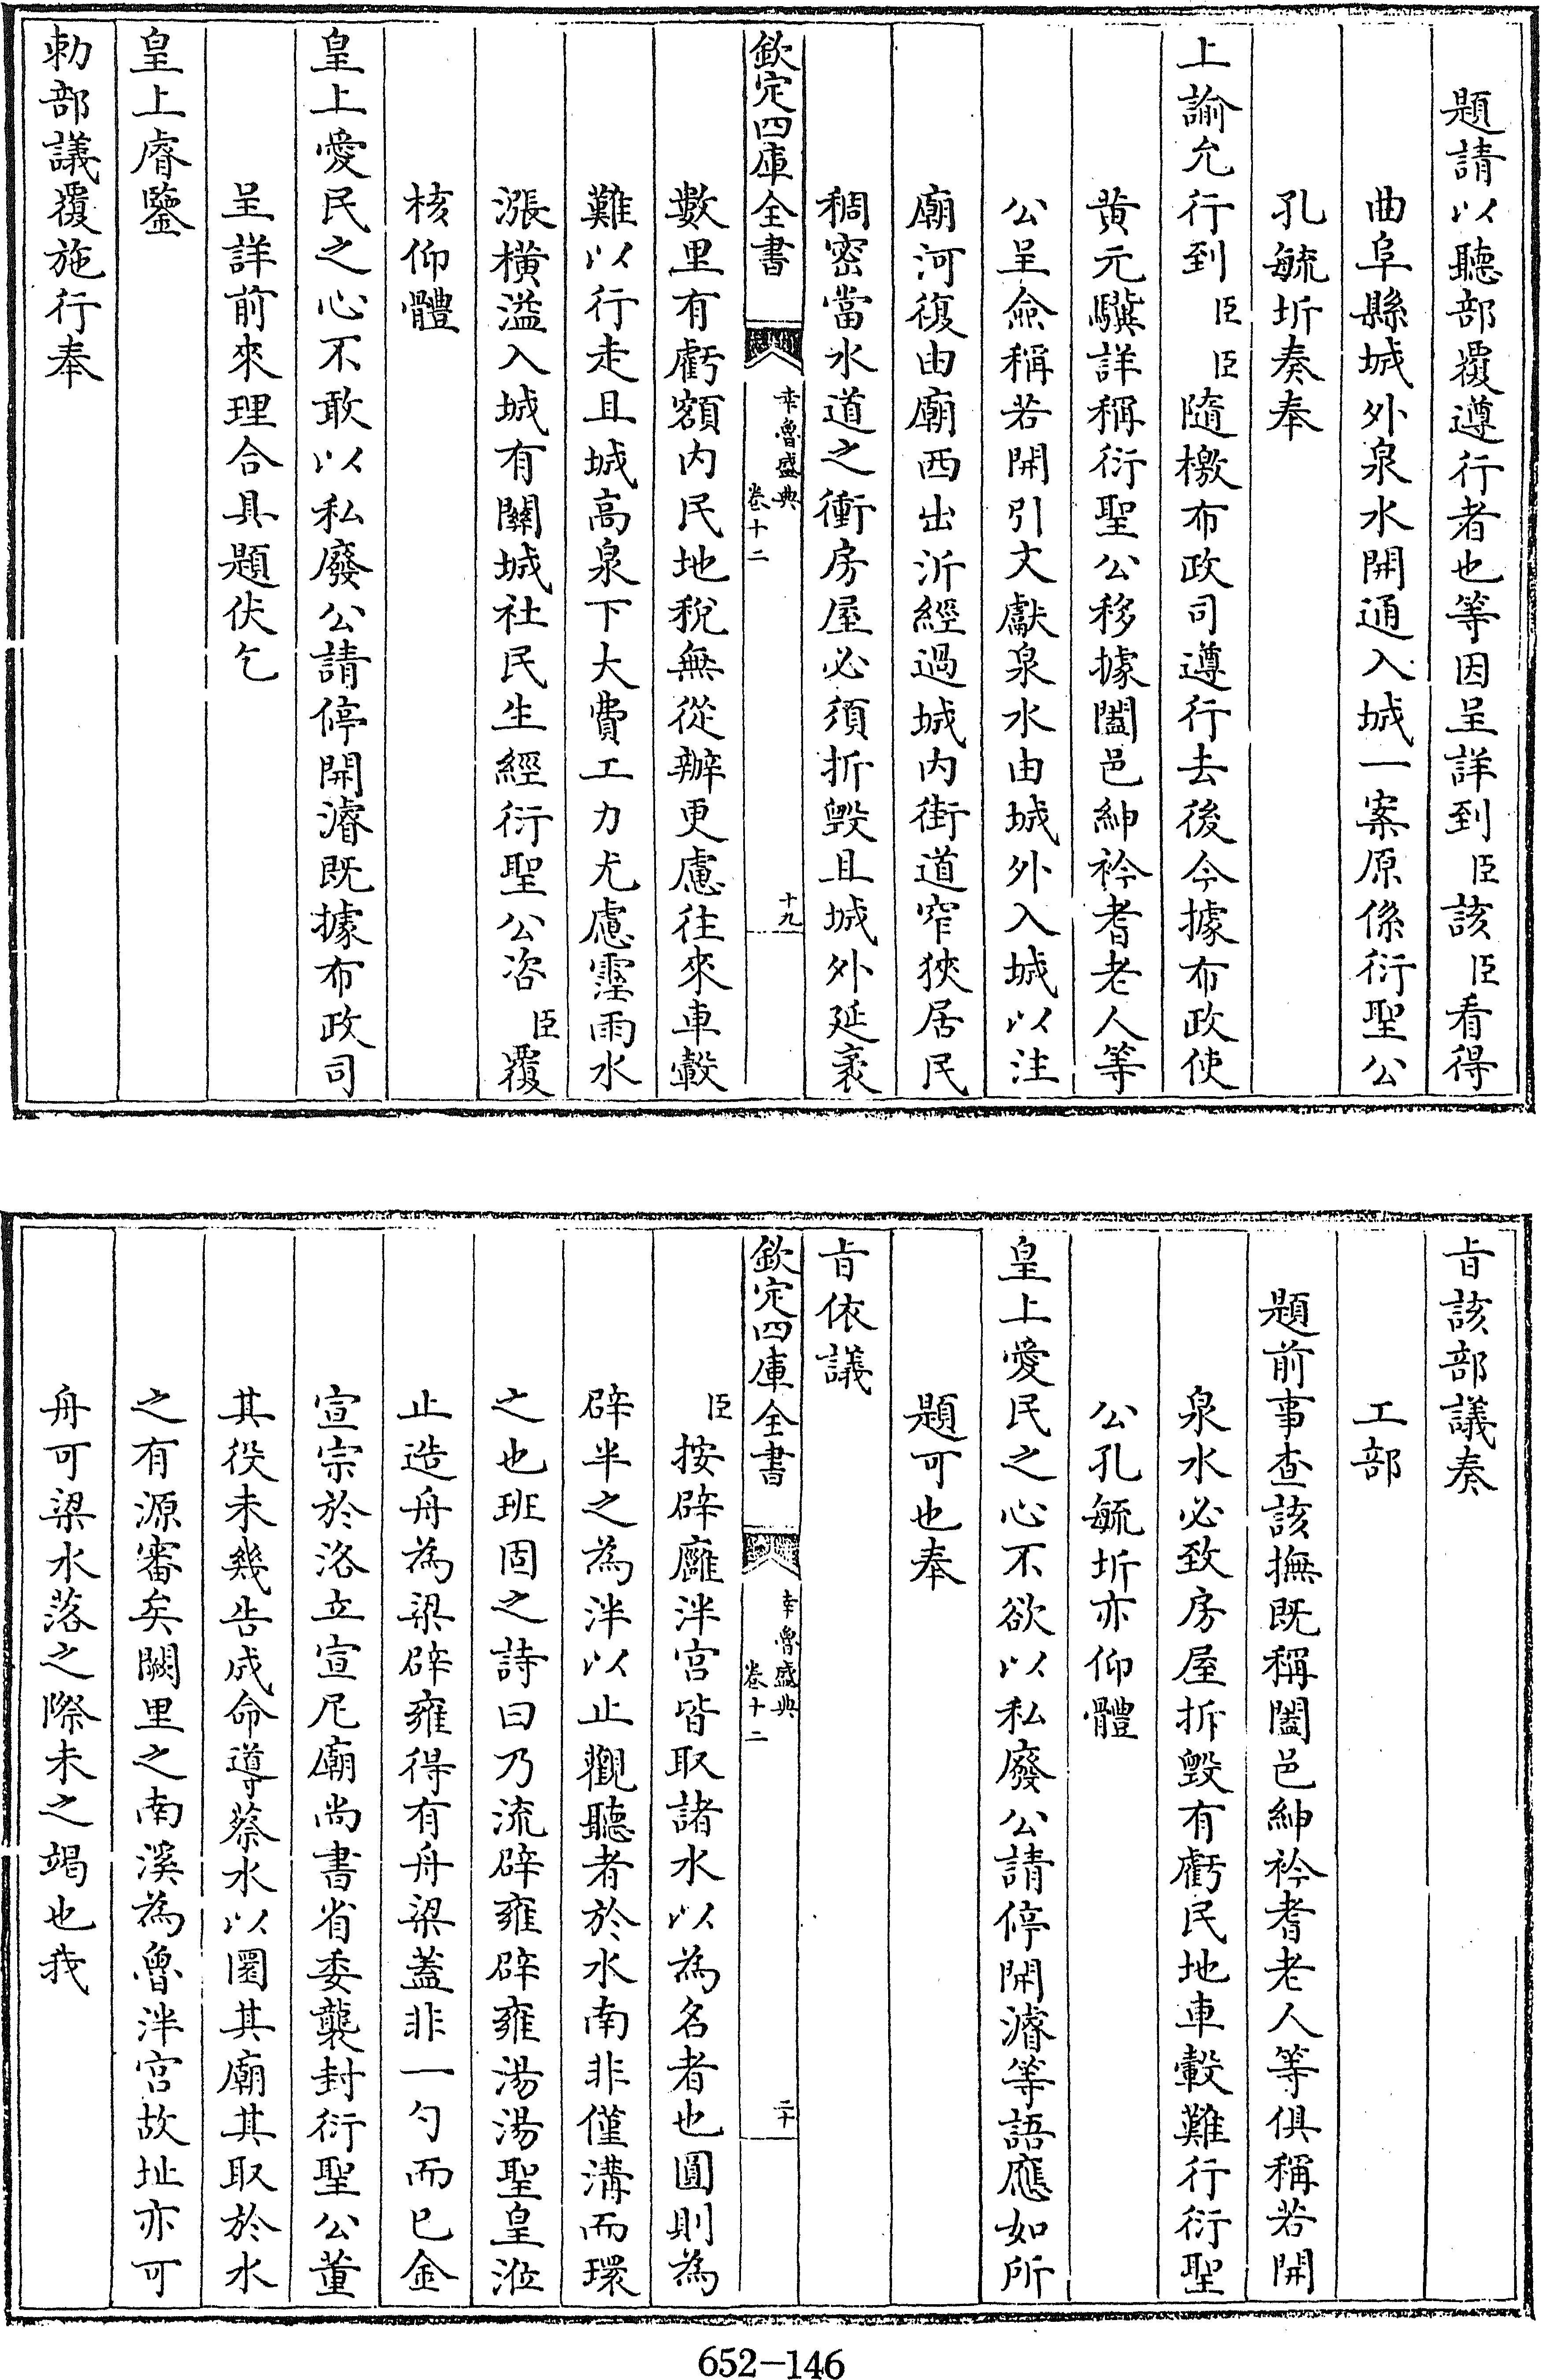 題請以聽部覆遵行者也等因呈詳到臣該臣看得
曲阜縣城外泉水開通入城一案原係衍聖公
孔毓圻奏奉
上諭允行到臣臣隨檄布政司遵行去後今據布政使
黄元驥詳稱衍聖公移據闔邑紳衿耆老人等
公呈僉稱若開引文獻泉水由城外入城以注
廟河復由廟西出沂經過城内街道窄狹居民
稠密當水道之衝房屋必須折毁且城外延袤
欽定四庫全書
幸魯盛典
卷十二
十九
數里有虧額内民地稅無從辦更慮往來車轂
難以行走且城高泉下大費工力尤慮霪雨水
漲横溢入城有關城社民生經衍聖公咨臣覆
核仰體
皇上愛民之心不敢以私廢公請停開濬既據布政司
呈詳前來理合具題伏乞
皇上睿鑒
勅部議覆施行奉
旨該部議奏
工部
題前事查該撫既稱闔邑紳衿耆老人等俱稱若開
泉水必致房屋拆毁有虧民地車轂難行衍聖
公孔毓圻亦仰體
皇上愛民之心不欲以私廢公請停開濬等語應如所
題可也奉
旨依議
欽定四庫全書
幸魯盛典
卷十二
二十
臣按辟廱泮宫皆取諸水以為名者也圓則為
辟半之為泮以止觀聽者於水南非僅溝而環
之也班固之詩曰乃流辟雍辟雍湯湯聖皇涖
止造舟為梁辟雍得有舟梁蓋非一勺而已金
宣宗於洛立宣尼廟尚書省委襲封衍聖公董
其役未幾告成命導蔡水以圜其廟其取於水
之有源審矣闕里之南溪為魯泮宫故址亦可
舟可梁水落之際未之竭也我
652-146